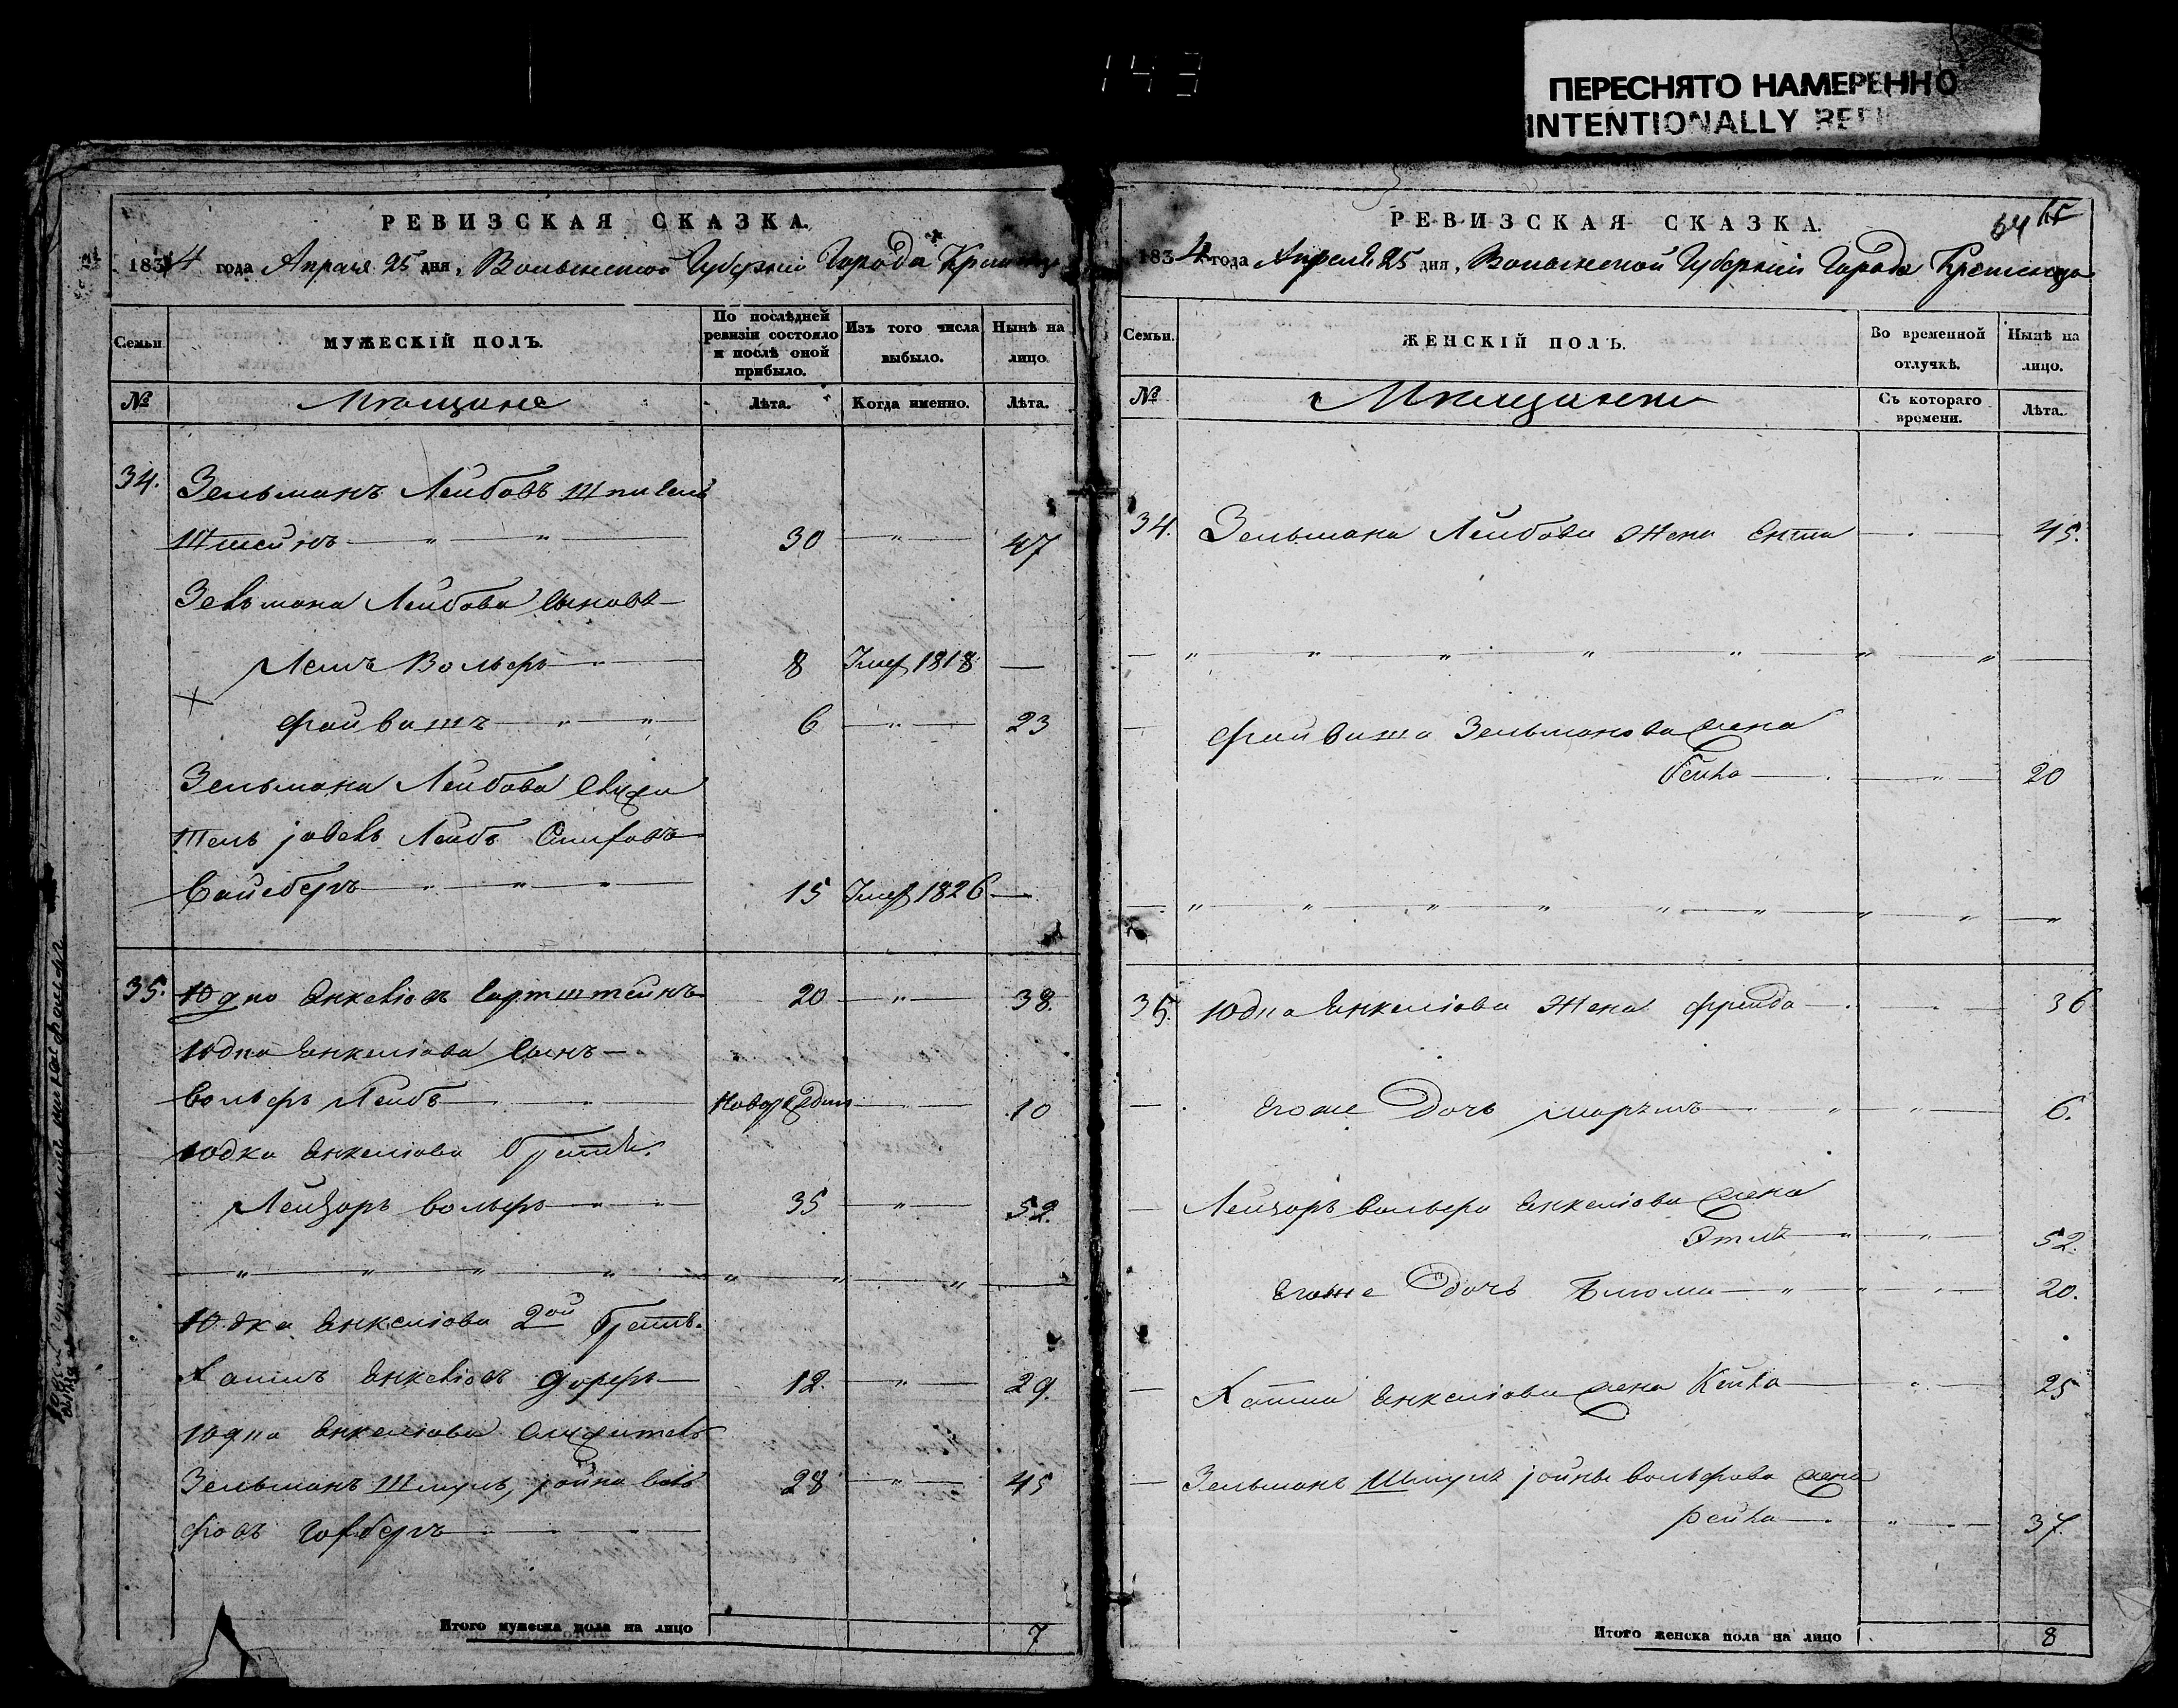 143
ПЕРЕСНЯТО НАМЕРЕННО
INTENTIONALLY
РЕВИЗСКАЯ СКАЗКА.
1834 года Апреля 25 дня, Волынской Губерніи Города Кременца
Семьи. МУЖЕСКІЙ ПОЛЪ. По послѣдней ревизіи состояло и послѣ оной прибыло. Изъ того числа выбыло. Нынѣ на лицо
№ Мѣщане Лѣта. Когда именно. Лѣта.
34. Зельманъ Лейбовъ Шпигель
Штейнъ 30 47
Зельмана Лейбова сыновъ
Лейб Вольфъ 8 Умеръ 1818
Файвишъ 6 23
Зельмана Лейбова служи
тель Лейбъ
Вайсбергъ 15 Умеръ 1826
35. Юдко Янкеліовъ Гартштейнъ 20 38.
Юдка Янкеліова сынъ
Вольфъ Лейбъ Новорожден 10
Юдка Янкеліова братъ.
Лейзоръ Вольфъ 35 52.
Юдка Янкеліова 2ой братъ.
Хаимъ Янкеліовъ Дорфъ 12. 29.
Юдка Янкеліова служитель
Зельманъ Шмуль, Іойна Воль 28 45
фовъ Голбергъ
Итого мужеска пола на лицо 7
РЕВИЗСКАЯ СКАЗКА. 64 65
1834 года Апреля 25 дня, Волынской Губерніи Города Кременца
Семьи. ЖЕНСКІЙ ПОЛЪ. Во временной отлучкѣ. Нынѣ на лицо.
№ Мѣщанки Съ котораго времени. Лѣта.
34. Зельмана Лейбова Жена Ента 45.
Файвиша Зельманова жена
Бейла 20
35. Юдка Янкеліова Жена Фрейда 36
Егоже Дочь 6.
Лейзоръ Вольфа Янкеліова жена
Этля 52.
Егоже Дочь Блюма 20.
Хаима Янкеліова жена Кейла 25
Зельманъ Шмуля Іойны Вольфова жена
Рейла 37.
Итого женска пола на лицо 8